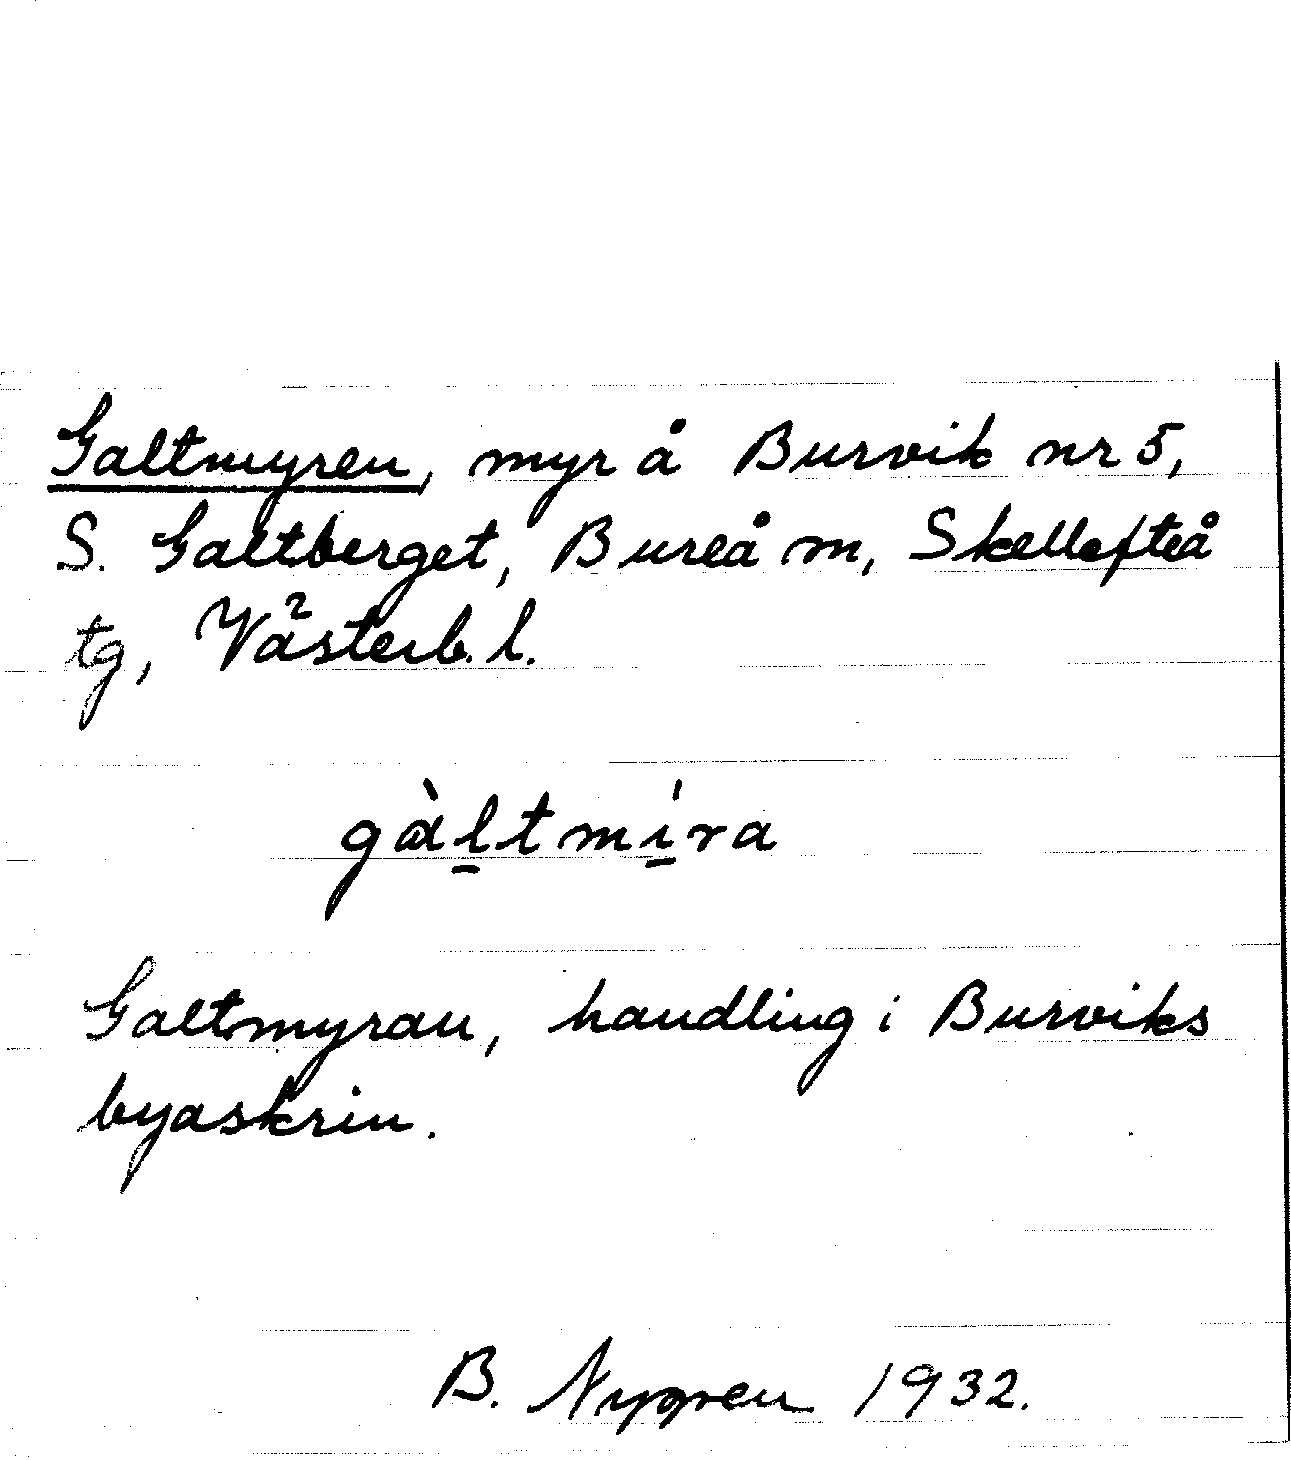 Galtmyren, myr å Burvik nr 5,
S. Galtberget, Bureå m, Skellefteå
tg, Västerb. l.
gàl̠tmí̠ra
Galtmyran, handling i Burviks
byaskrin.
B. Nygren 1932.